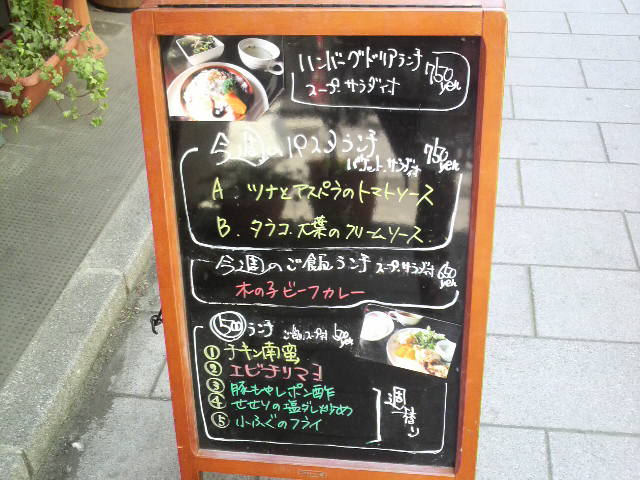 ハンバーグドリアランチ 750yen
スープ、サラダ付
今週のパスタランチ 750yen
バケット、サラダ付
A. ツナとアスパラのトマトソース
B. タラコ、大葉のクリームソース
今週のご飯ランチ スープ、サラダ付 650yen
木の子ビーフカレー
500ランチ ご飯、スープ付 500yen
① チキン南蛮
② エビチリマヨ
③ 豚もやしポン酢
④ せせりの塩ダレ炒め
⑤ 小ふぐのフライ
週替り